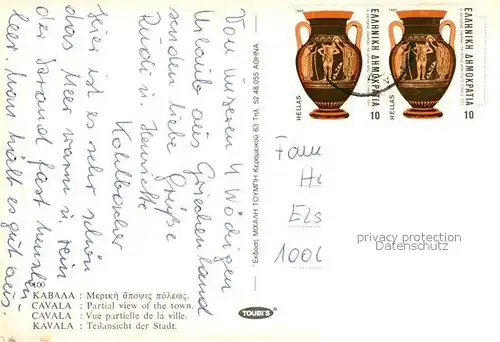 Von unserem 4 wöchigen
Urlaub aus Griechenland
senden liebe Grüße
Rudi u. Henriette
Kohlbacher
hier ist es sehr schön
das Meer warm u. rein
der Strand fast menschen
leer. Man hält es gut aus.
100
ΚΑΒΑΛΑ : Μερική ἄποψις πόλεως.
CAVALA : Partial view of the town.
CAVALA : Vue partielle de la ville.
KAVALA : Teilansicht der Stadt.
TOUBI'S
Ἐκδοση ΜΙΧΑΛΗ ΤΟΥΜΠΗ Κεραμεικού 63 Τηλ. 52.48.055 ΑΘΗΝΑ
ΕΛΛΗΝΙΚΗ ΔΗΜΟΚΡΑΤΙΑ
HELLAS
10
1983
ΕΛΛΗΝΙΚΗ ΔΗΜΟΚΡΑΤΙΑ
HELLAS
10
1983
Fam
He
Eis
100
privacy protection
Datenschutz